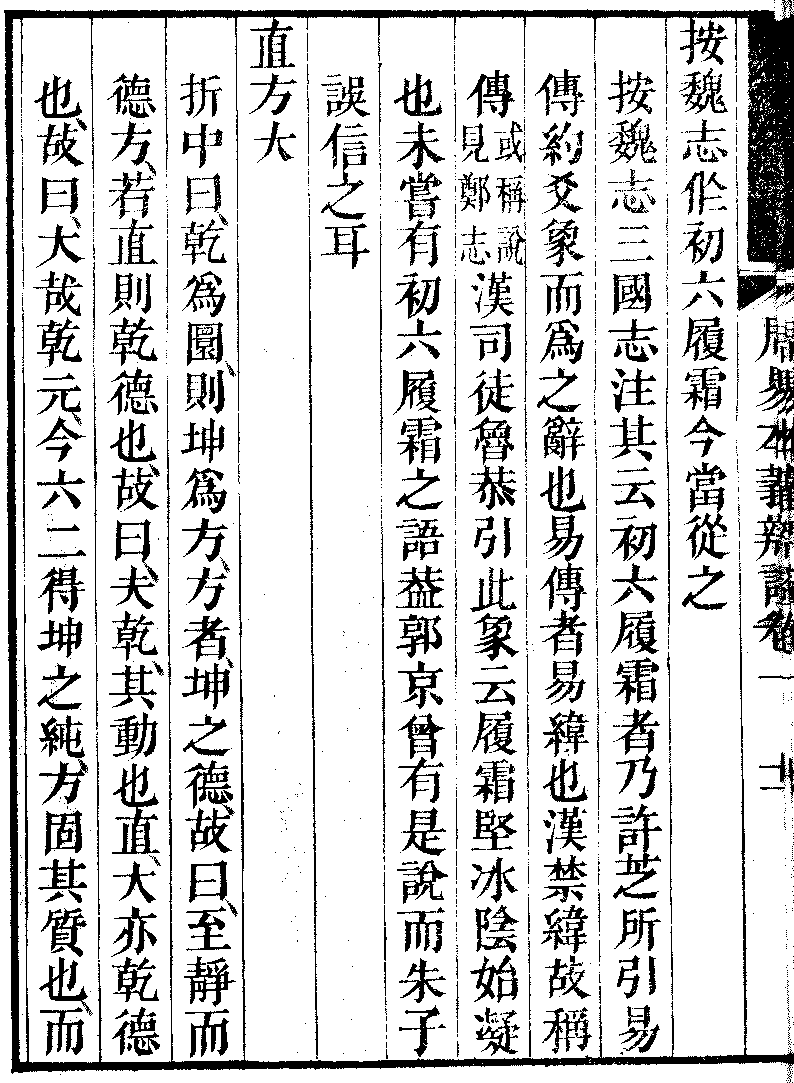 按魏志作初六履霜今當從之
按魏志三國志注其云初六履霜者乃許芝所引易
傳約爻象而爲之辭也易傳者易緯也漢禁緯故稱
傳或稱說見鄭志漢司徒魯恭引此象云履霜堅冰陰始凝
也未嘗有初六履霜之語葢郭京曾有是說而朱子
誤信之耳
直方大
折中曰乾爲圜則坤爲方方者坤之德故曰至靜而
德方若直則乾德也故曰夫乾其動也直大亦乾德
也故曰大哉乾元今六二得坤之純方固其質也而